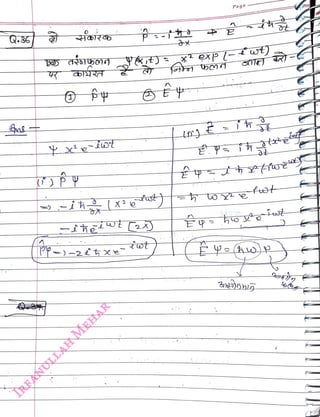 Q.36 दो संकारक P̂ = -iħ ∂/∂x → Ê - iħ ∂/∂t
एक तरंगफलन Ψ(x,t) = x² exp(-iωt)
पर कार्यरत है तो निम्न फलन ज्ञात करो -
① P̂Ψ ② ÊΨ
Ans -
Ψ x² e^-iωt
(i) P̂Ψ
⇒ -iħ ∂/∂x (x² e^-iωt)
-iħ e^-iωt [2x]
P̂Ψ ⇒ -2iħ x e^-iωt
(ii) Ê = iħ ∂/∂t
ÊΨ = iħ ∂/∂t (x² e^-iωt)
ÊΨ = -iħ x² (iω e^-iωt)
= ħ ω x² e^-iωt
ÊΨ = ħω x² e^-iωt
ÊΨ = (ħω) Ψ
Q.37
IRFANULLAH MEHAR